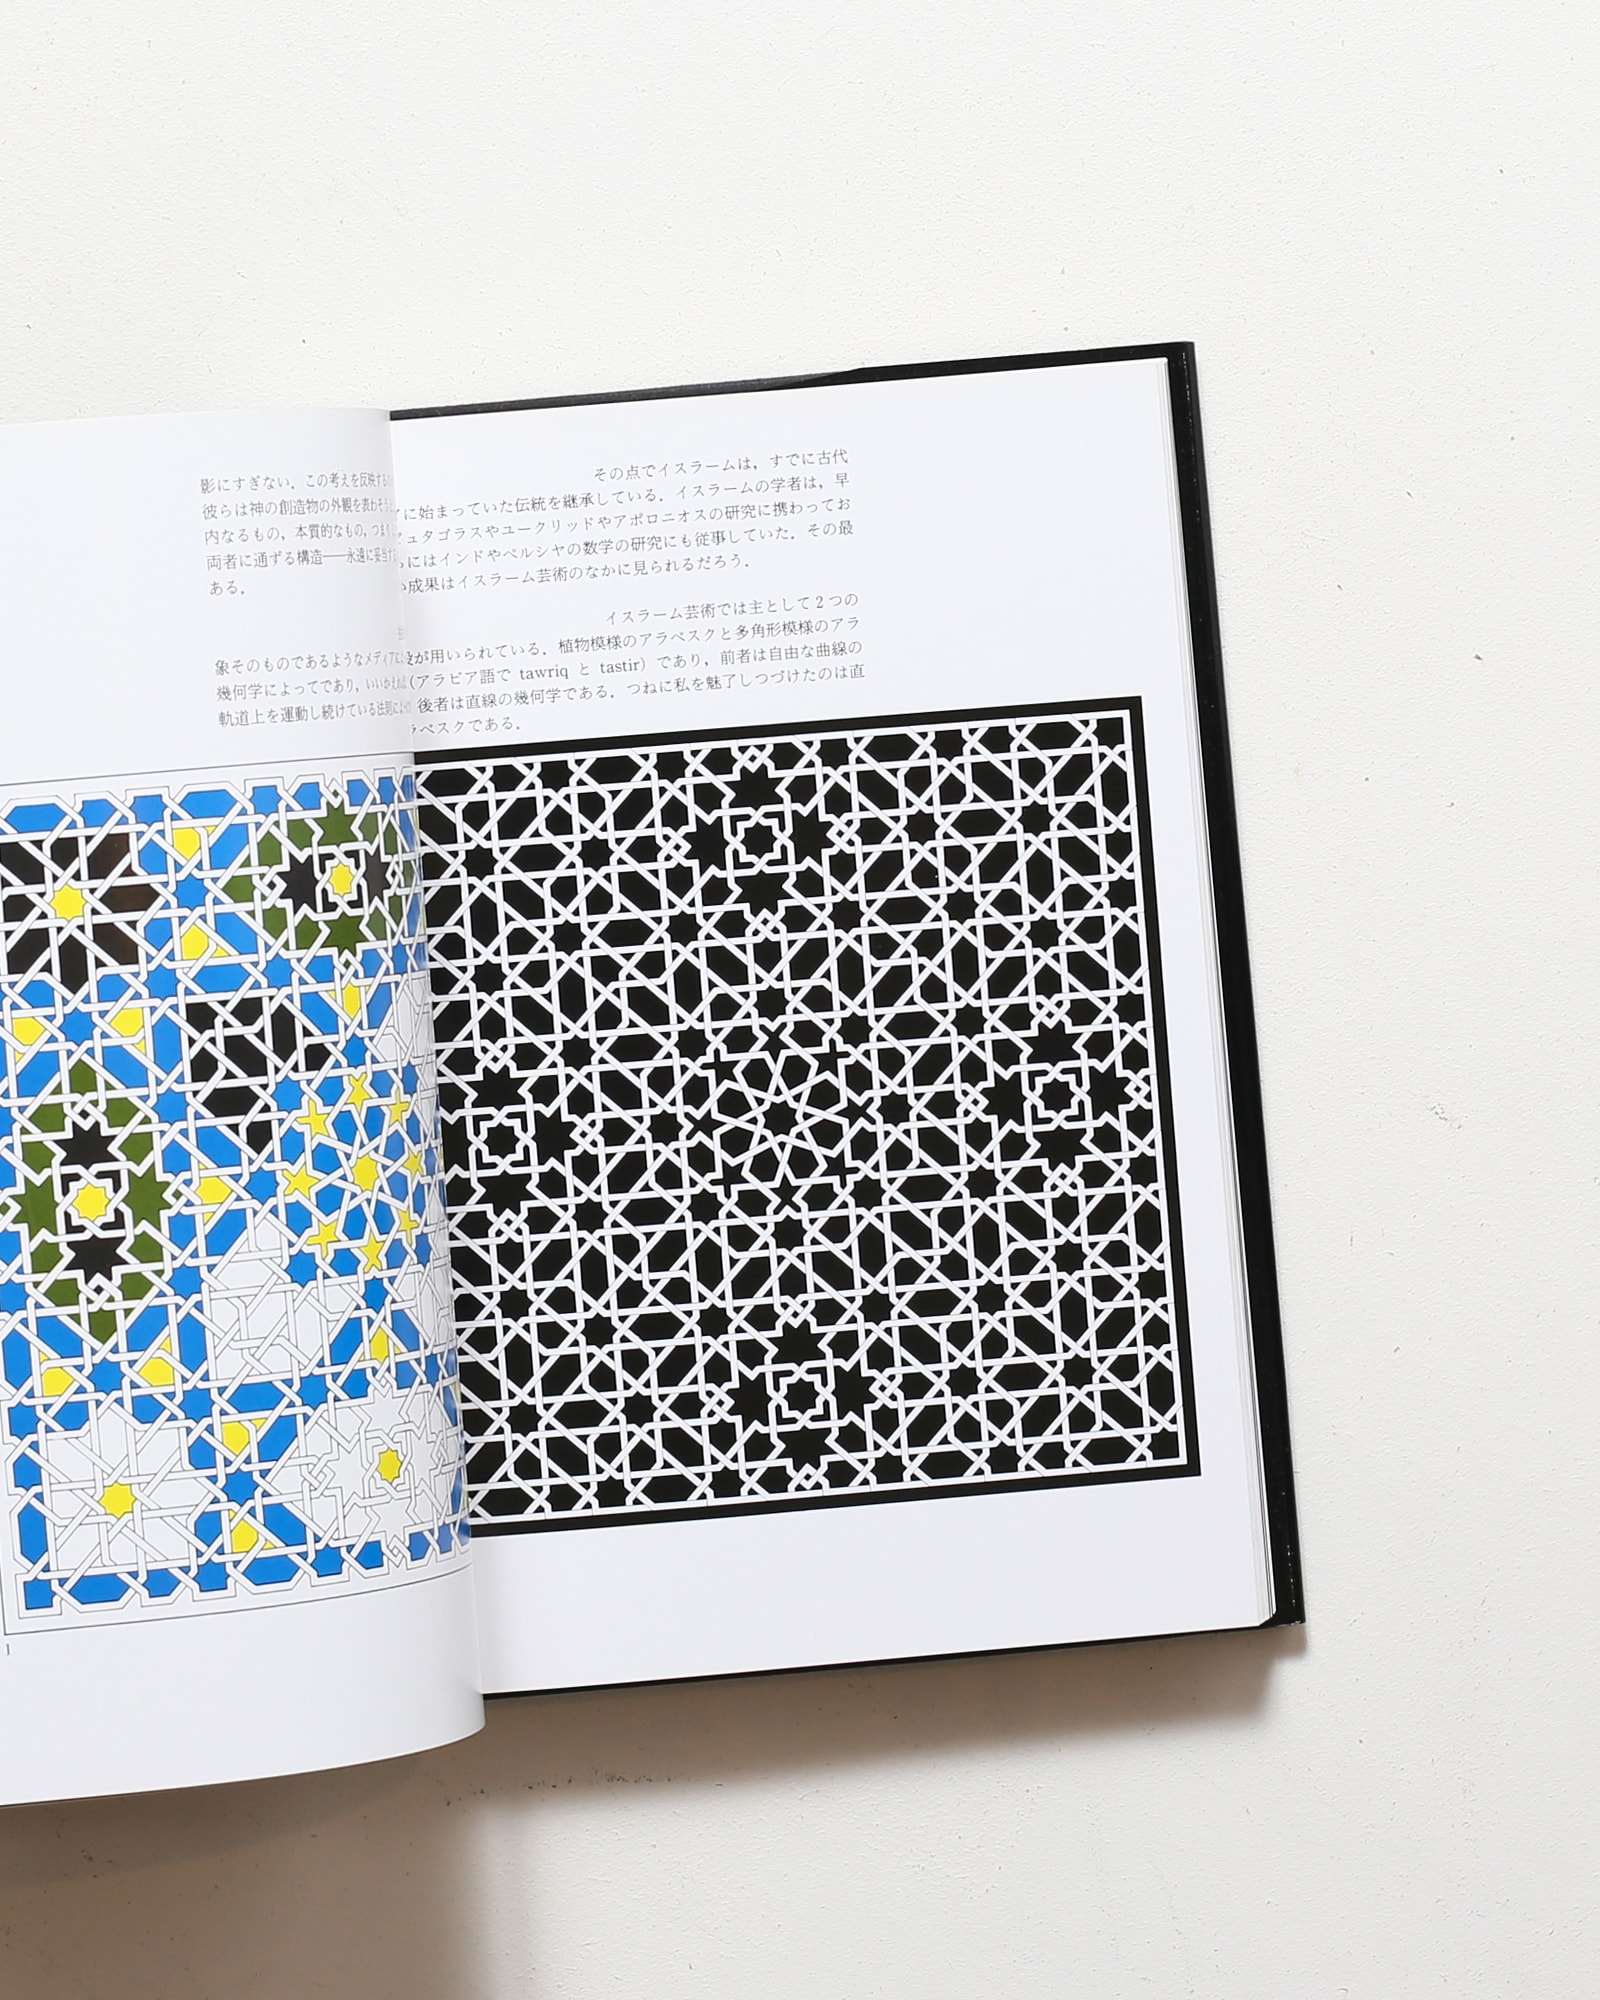 影にすぎない．この考えを反映する
彼らは神の創造物の外観を表わそう
内なるもの，本質的なもの，つまり
両者に通ずる構造――永遠に妥当す
ある．
象そのものであるようなメディアに
幾何学によってであり，いいかえれば
軌道上を運動し続けている法則によっ
1
その点でイスラームは，すでに古代
に始まっていた伝統を継承している．イスラームの学者は，早
ュタゴラスやユークリッドやアポロニオスの研究に携わってお
にはインドやペルシャの数学の研究にも従事していた．その最
い成果はイスラーム芸術のなかに見られるだろう．
イスラーム芸術では主として2つの
が用いられている．植物模様のアラベスクと多角形模様のアラ
（アラビア語で tawriq と tastir）であり，前者は自由な曲線の
後者は直線の幾何学である．つねに私を魅了しつづけたのは直
ラベスクである．